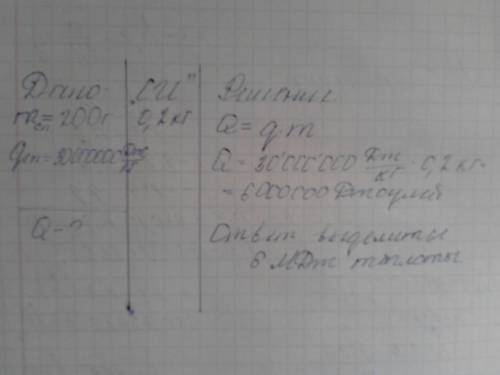 Дано:
mсп = 200г
qсп = 30000000 Дж/кг
Q - ?
"СИ"
0,2 кг
Решение
Q = q·m
Q = 30'000'000 Дж/кг · 0,2 кг =
= 6000000 Джоулей
Ответ выделиться
6 МДж теплоты